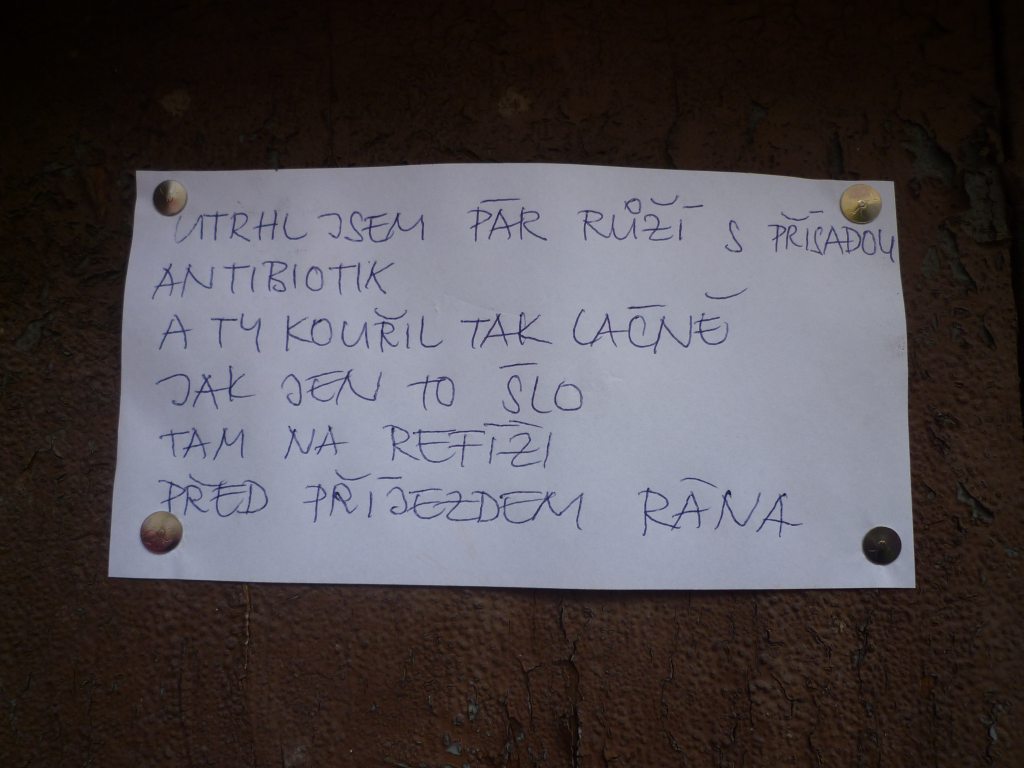 UTRHL JSEM PÁR RŮŽÍ S PŘÍSADOU
ANTIBIOTIK
A TY KOUŘIL TAK LAČNĚ
JAK JEN TO ŠLO
TAM NA REFÍŽI
PŘED PŘÍJEZDEM RÁNA